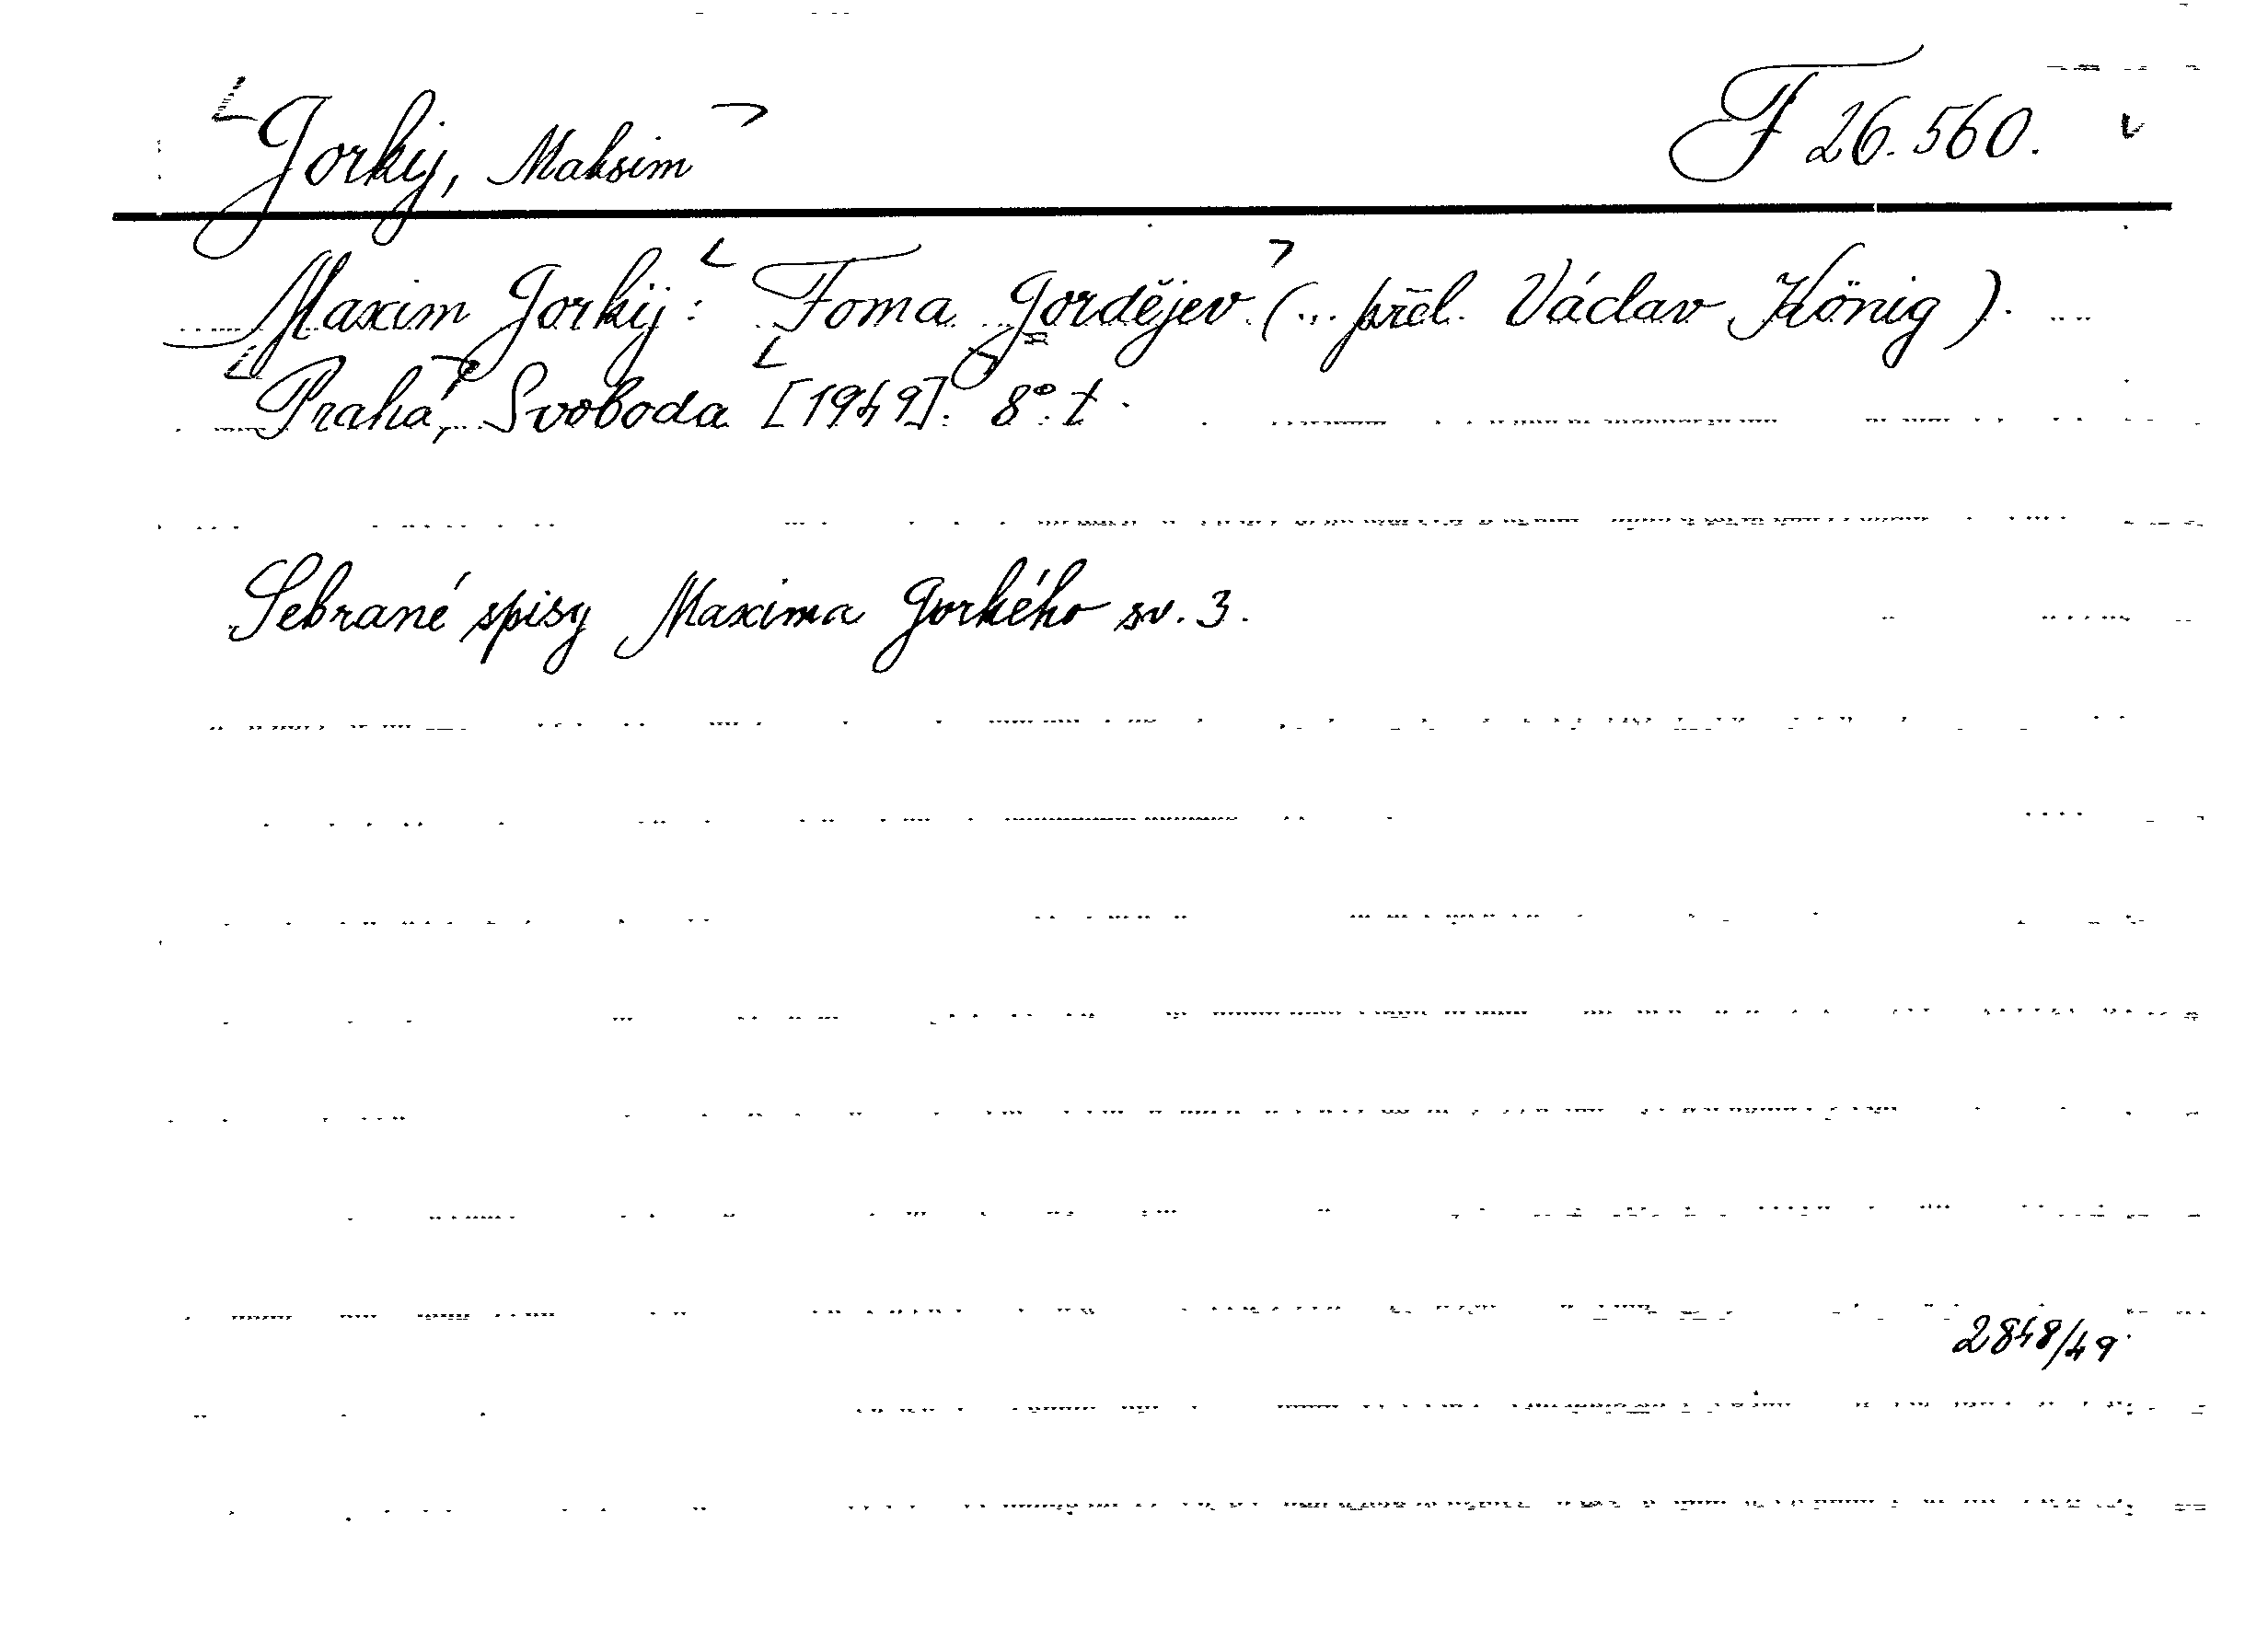 Gorkij, Maksim F 26.560.
Maxim Gorkij: Foma Gordějev (... přel. Václav König).
Praha, Svoboda [1949]. 8°. t.
Sebrané spisy Maxima Gorkého sv. 3.
2848/49